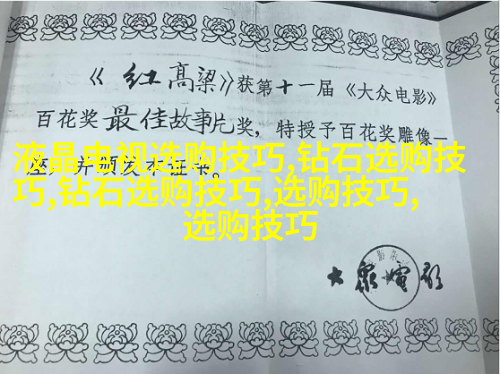 《红高粱》获第十一届《大众电影》
百花奖最佳故事片奖，特授予百花奖雕像一
座，并颁发本证书。
液晶电视选购技巧,钻石选购技
巧,钻石选购技巧,选购技巧,
选购技巧
大众电影